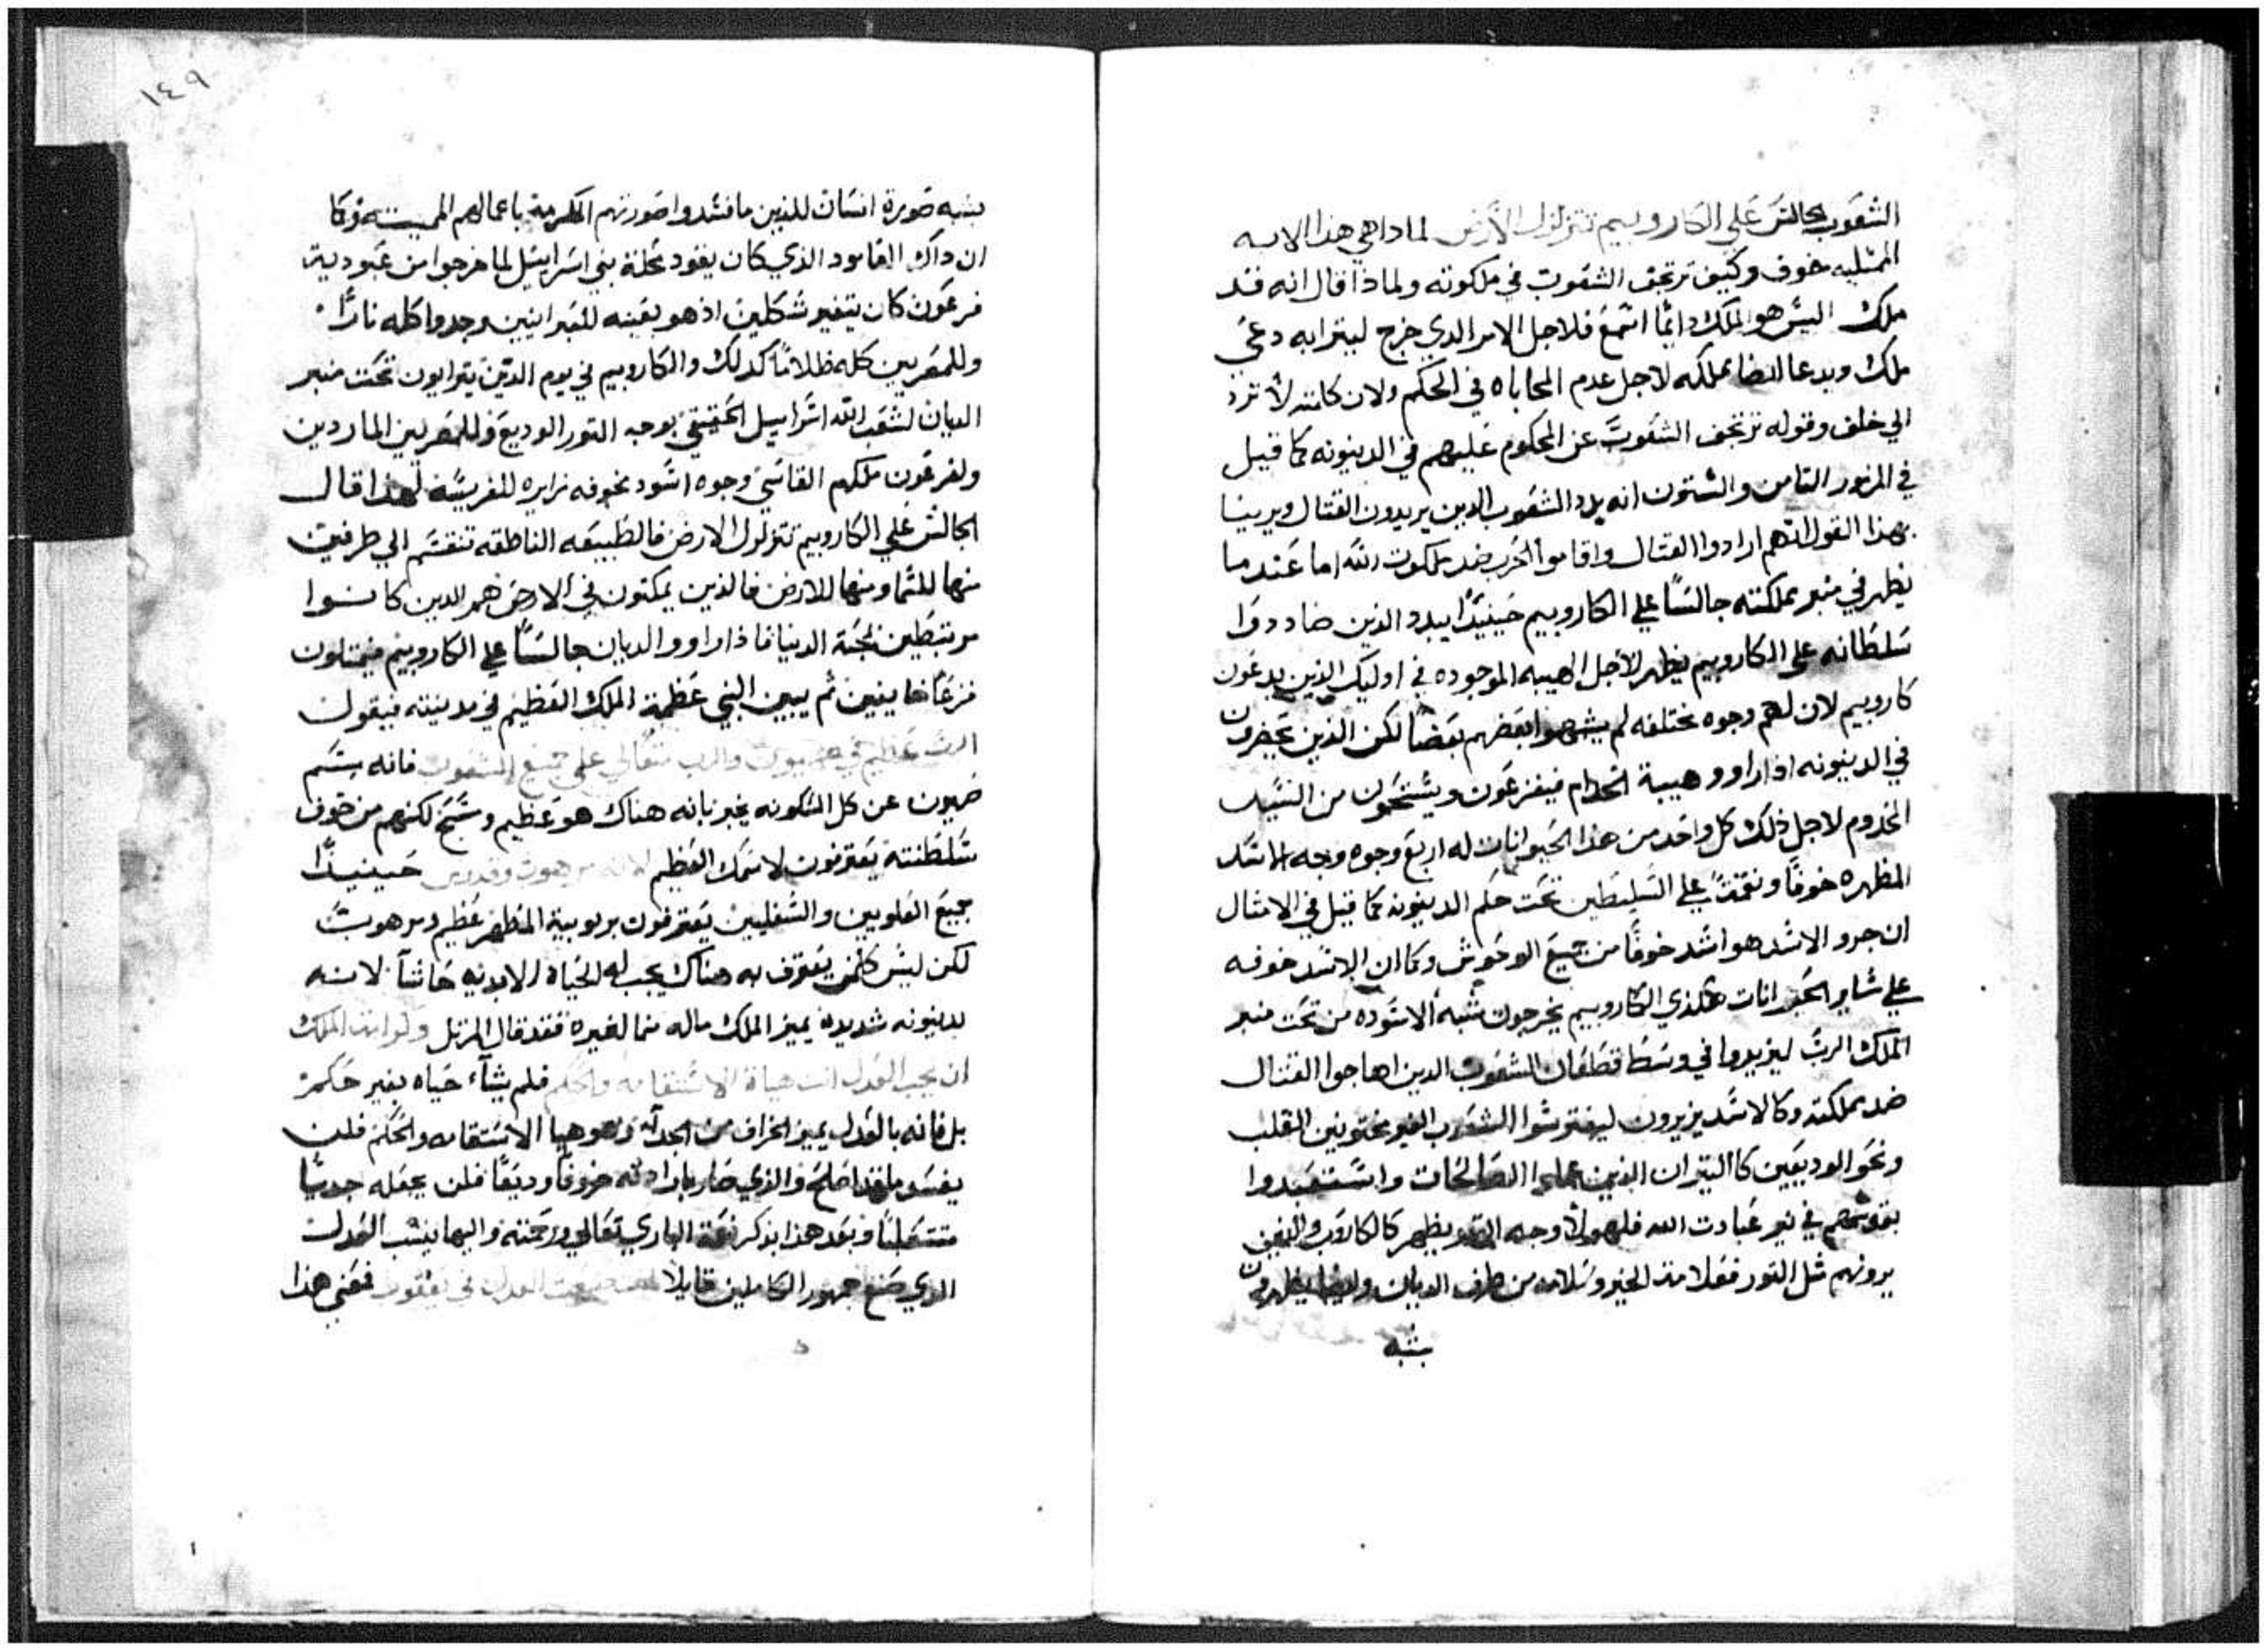 الشعوب الجالس علي الكاروبيم تتزلزل الأرض لماذا هي هذا الايه
الممتليه خوف وكيف ترتجف الشعوب في ملكوته ولماذا قال انه قد
ملك اليس هو الملك دايمًا اسمع فلاجل الامر الدي خرج ليترابه دعي
ملك ويدعا ايضا بملكه لاجل عدم المحاباه في الحكم ولان كلمته لا ترد
الي خلف وقوله ترتجف الشعوب عن المحكوم عليهم في الدينونه كما قيل
في المزمور التامن والستون انه يبدد الشعوب الدين يريدون القتال ويرينا
بهذا القول انهم ارادوا القتال واقاموا الحرب ضد ملكوت الله اما عندما
يظهر في منبر مملكته جالسًا علي الكاروبيم حينيذًا يبدد الذين ضاددوا
سلطانه علي الكاروبيم يظهر لاجل الهيبه الموجوده في اوليك الذين يدعون
كاروبيم لان لهم وجوه مختلفه لم يشبهوا بعضهم بعضًا لكن الذين يحضرون
في الدينونه اذا راوو هيبة الخدام فيفزعون ويستحون من السيد
المخدوم لاجل ذلك كل واحد من هذا الحيوانات له اربع وجوه وجه الاسد
المظهره خوفًا ونقمةً علي السليطين تحت حكم الدينونه كما قيل في الامثال
ان جرو الاسد هو اشد خوفًا من جميع الوحوش وكما ان الاسد خوفه
علي ساير الحيوانات هكذي الكاروبيم يخرجون شبه الاسوده من تحت منبر
الملك الرب ليزيدوا في وسط قطعان الشعوب الدين اهاجوا القتال
ضد مملكته وكالاسد يزيرون ليفترسوا الشعوب الغير مختونين القلب
ونحو الوديعين كالتيران الذين عملوا الصالحات واستعبدوا
بنفوسهم في نير عبادت الله فلهولا وجه التور يظهر كالكاروب والذين
يرونهم مثل التور فعلامة الخير وسلامه من طرف الديان وايضا يظهرون
بشبه
١٤٩
بشبه صورة انسان للذين ما فسدوا صورتهم المكرمة باعمالهم المميته وكما
ان داك العامود الذي كان يقود محلة بني اسراييل لما خرجوا من عبودية
فرعون كان يتغير شكلين اذ هو بعينه للعبرانيين وجدوا كله نارًا
وللمصريين كله ظلامًا كدلك والكاروبيم في يوم الدين يترايون تحت منبر
الديان لشعب الله اسراييل الحقيقي بوجه التور الوديع وللمصريين الماردين
ولفرعون ملكهم القاسي وجوه اسود مخوفه زايره للفريسة لهذا قال
الجالس علي الكاروبيم تتزلزل الارض فالطبيعه الناطقه تنقسم الي طرفين
منها للسما ومنها للارض فالذين يمكتون في الارض هم الدين كانوا
مرتبطين لمحبة الدنيا فاذا راوو الديان جالسًا علي الكاروبيم فيمتلون
فزعًا خايفين ثم يبين النبي عظمة الملك العظيم في مدينته فيقول
الرب عظيم في صهيون والرب متعالي علي جميع الشعوب فانه يسم
صهيون عن كل المسكونه يخبرنا بانه هناك هو عظيم ومسبح لكنهم من خوف
سلطنته يعترفون لاسمك العظيم لانه مرهوب وقدوس حينيذًا
جميع العلويين والسفليين يعترفون بربوبية المظهر عظيم ومرهوب
لكن ليس كلمن يعترف به هناك يجب له الحياه الابديه حاشا لانه
بدينونه شديده يميز الملك ماله مما لغيره فقد قال المرتل وكرامة الملك
ان يحب العدل انت هياة الاستقامه والحكم فلم يشآء حياه بغير حكم
بل فانه بالعدل يميز الخراف من الجدآ وهو هيا الاستقامه والحكم فلن
يفسد ما قد اصلح والذي صار بارادته خروفًا وديعًا فلن يجعله جديًا
متشكلنًا وبعد هذا يذكر نعمة الباري تعالي ورحمته واليها ينسب العدل
الدي صنع جمهور الكاملين قايلا انت صنعت العدل في يعقوب فمعني هذا